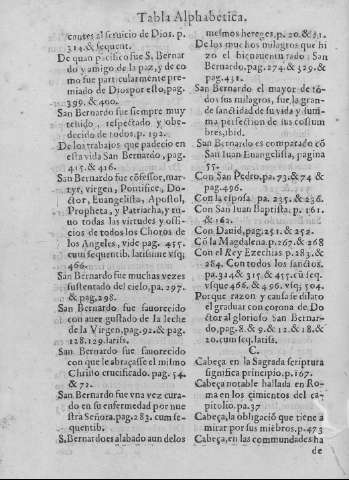 Tabla Alphabetica.
centes al seruicio de Dios. p.
314. & sequent.
De quan pacifico fue S. Bernar
do y amigo de la paz, y de co
mo fue particularmente pre-
miado de Dios por esto, pag.
399. & 400.
San Bernardo fue siempre muy
tenido, respectado y obe-
decido de todos, p. 192.
De los trabajos que padecio en
esta vida San Bernardo, pag.
415. & 416.
San Bernardo fue cõfessor, mar-
tyr, virgen, Pontifice, Do-
ctor, Euangelista, Apostol,
Propheta, y Patriarcha, y tu-
uo todas las virtudes y offi-
cios de todos los Choros de
los Angeles, vide pag. 455.
cum sequentib. latissime vsq;
466.
San Bernardo fue muchas vezes
sustentado del cielo, pa. 297.
& pag, 298.
San Bernardo fue fauorecido
con auer gustado de la leche
de la Virgen, pag. 92. & pag.
128. 129. latiss.
San Bernardo fue fauorecido
con que le abraçasse el mismo
Christo crucificado. pag. 54.
& 72.
San Bernardo fue vna vez cura-
do en su enfermedad por nue
stra Señora. pag. 283. cum se-
quentib.
S. Bernardo es alabado aun de los
mesmos hereges, p. 20. & 21.
De los muchos milagros que hi
zo el bienauenturado San
Bernardo, pag. 274. & 329. &
pag. 431.
San Bernardo el mayor de to-
dos sus milagros, fue la gran-
de sanctidad de su vida y sum-
ma perfection de sus costum
bres, ibid.
San Bernardo es comparado cõ
San Iuan Euangelista, pagina
55.
Con San Pedro, pa. 73. & 74 &
pag. 496.
Con la esposa pa. 235. & 236.
Con San Iuan Baptista. p. 161.
& 162.
Con Dauid, pag, 251. & 252.
Cõ la Magdalena. p. 267. & 268
Con el Rey Ezechias p. 283. &
284. Con todos los sanctos.
pa. 314 & 315. & 455. cũ seq.
vsque 466. & 496. vsq; 504.
Porque razon y causa se dilato
el graduar con corona de Do
ctor al glorioso San Bernar-
do, pag. 8. & 9. & 12. & 18. &
20. cum seq. latiss.
C.
Cabeça en la Sagrada scriptura
significa principio. p. 167.
Cabeça notable hallada en Ro-
ma en los cimientos del ca-
pitolio. pa. 37
Cabeça, la obligació que tiene a
mirar por sus miẽbros. p. 473
Cabeça, en las communidades ha
de